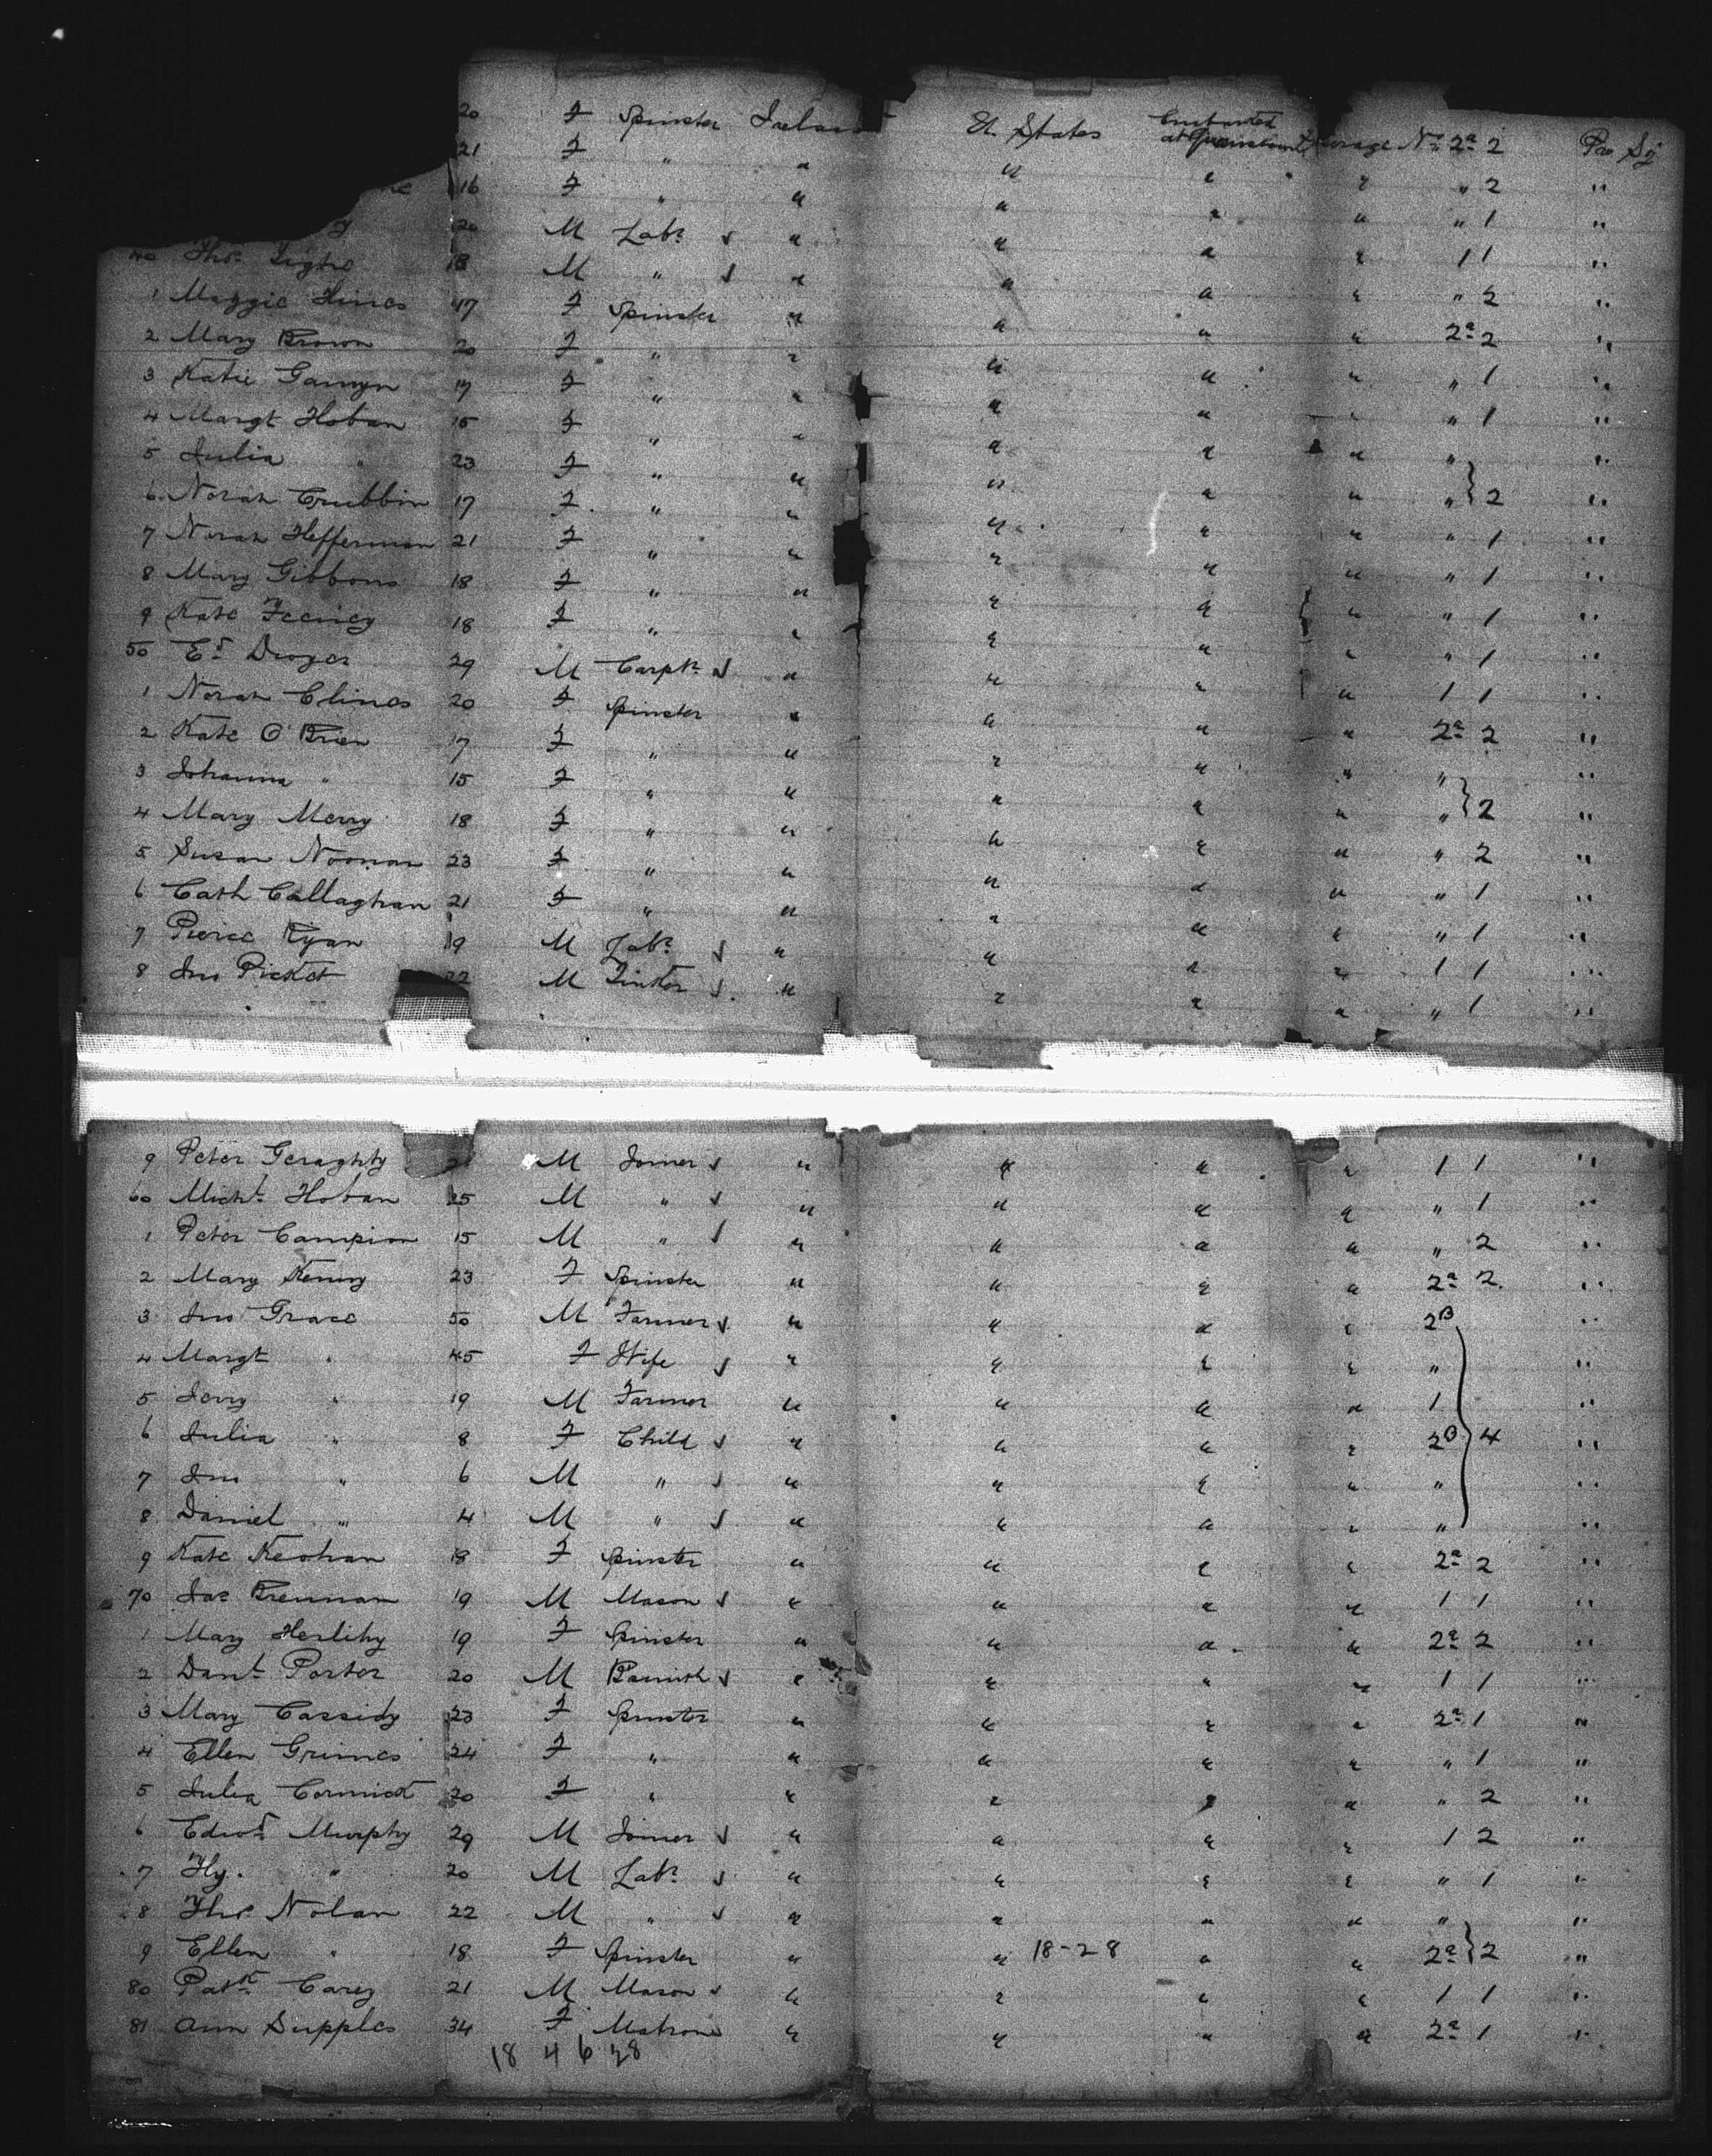 20 F Spinster Ireland U. States Embarked at Queenstown Steerage No 2a 2 Pro Sy
21 F " " " " " " 2 "
16 F " " " " " " 1 "
20 M Labr S " " " " 1 1 "
40 Thos Tighe 18 M " S " " " " " 2 "
1 Maggie Hines 17 F Spinster " " " " 2a 2 "
2 Mary Brown 20 F " " " " " " 1 "
3 Katie 17 F " " " " " " 1 "
4 Margt Hoban 15 F " " " " " "
5 Julia " 23 F " " " " " " 2 "
6 Norah Crubbin 17 F " " " " " " 1 "
7 Norah Heffernan 21 F " " " " " " 1 "
8 Mary Gibbons 18 F " " " " " " 1 "
9 Kate Feeney 18 F " " " " " " 1 "
50 Ed Dwyer 29 M Carptr S " " " " 1 1 "
1 Norah Clines 20 F Spinster " " " " 2a 2 "
2 Kate O'Brien 17 F " " " " " " "
3 Johanna " 15 F " " " " " " 2 "
4 Mary Merry 18 F " " " " " " 2 "
5 Susan Noonan 23 F " " " " " " 1 "
6 Cath Callaghan 21 F " " " " " " 1 "
7 Pierce Ryan 19 M Labr S " " " " 1 1 "
8 Jno Picket 22 M S " " " " " 1 "
9 Peter Geraghty 21 M Joiner S " " " " 1 1 "
60 Michl Hoban 25 M " S " " " " " 1 "
1 Peter Campion 15 M " S " " " " " 2 "
2 Mary Kenny 23 F Spinster " " " " 2a 2 "
3 Jno Grace 50 M Farmer S " " " " 2B "
4 Margt " 45 F Wife S " " " " " "
5 Jerry " 19 M Farmer " " " " 1 "
6 Julia " 8 F Child S " " " " 2B 4 "
7 Jno " 6 M " S " " " " " "
8 Daniel " 4 M " S " " " " " "
9 Kate Keohan 18 F Spinster " " " " 2a 2 "
70 Jas Brennan 19 M Mason S " " " " 1 1 "
1 Mary Herlihy 19 F Spinster " " " " 2a 2 "
2 Danl Porter 20 M S " " " " 1 1 "
3 Mary Cassidy 23 F Spinster " " " " 2a 1 "
4 Ellen Grimes 24 F " " " " " " 1 "
5 Julia Cormick 20 F " " " " " " 2 "
6 Edwd Murphy 29 M Joiner S " " " " 1 2 "
7 Hy. " 20 M Labr S " " " " " 1 "
8 Thos Nolan 22 M " S " " " " " "
9 Ellen " 18 F Spinster " " 18-28 " " 2a 2 "
80 Patk Carey 21 M Mason S " " " " 1 1 "
81 Ann Supples 34 F Matron " " " " 2a 1 "
18 4 6 28